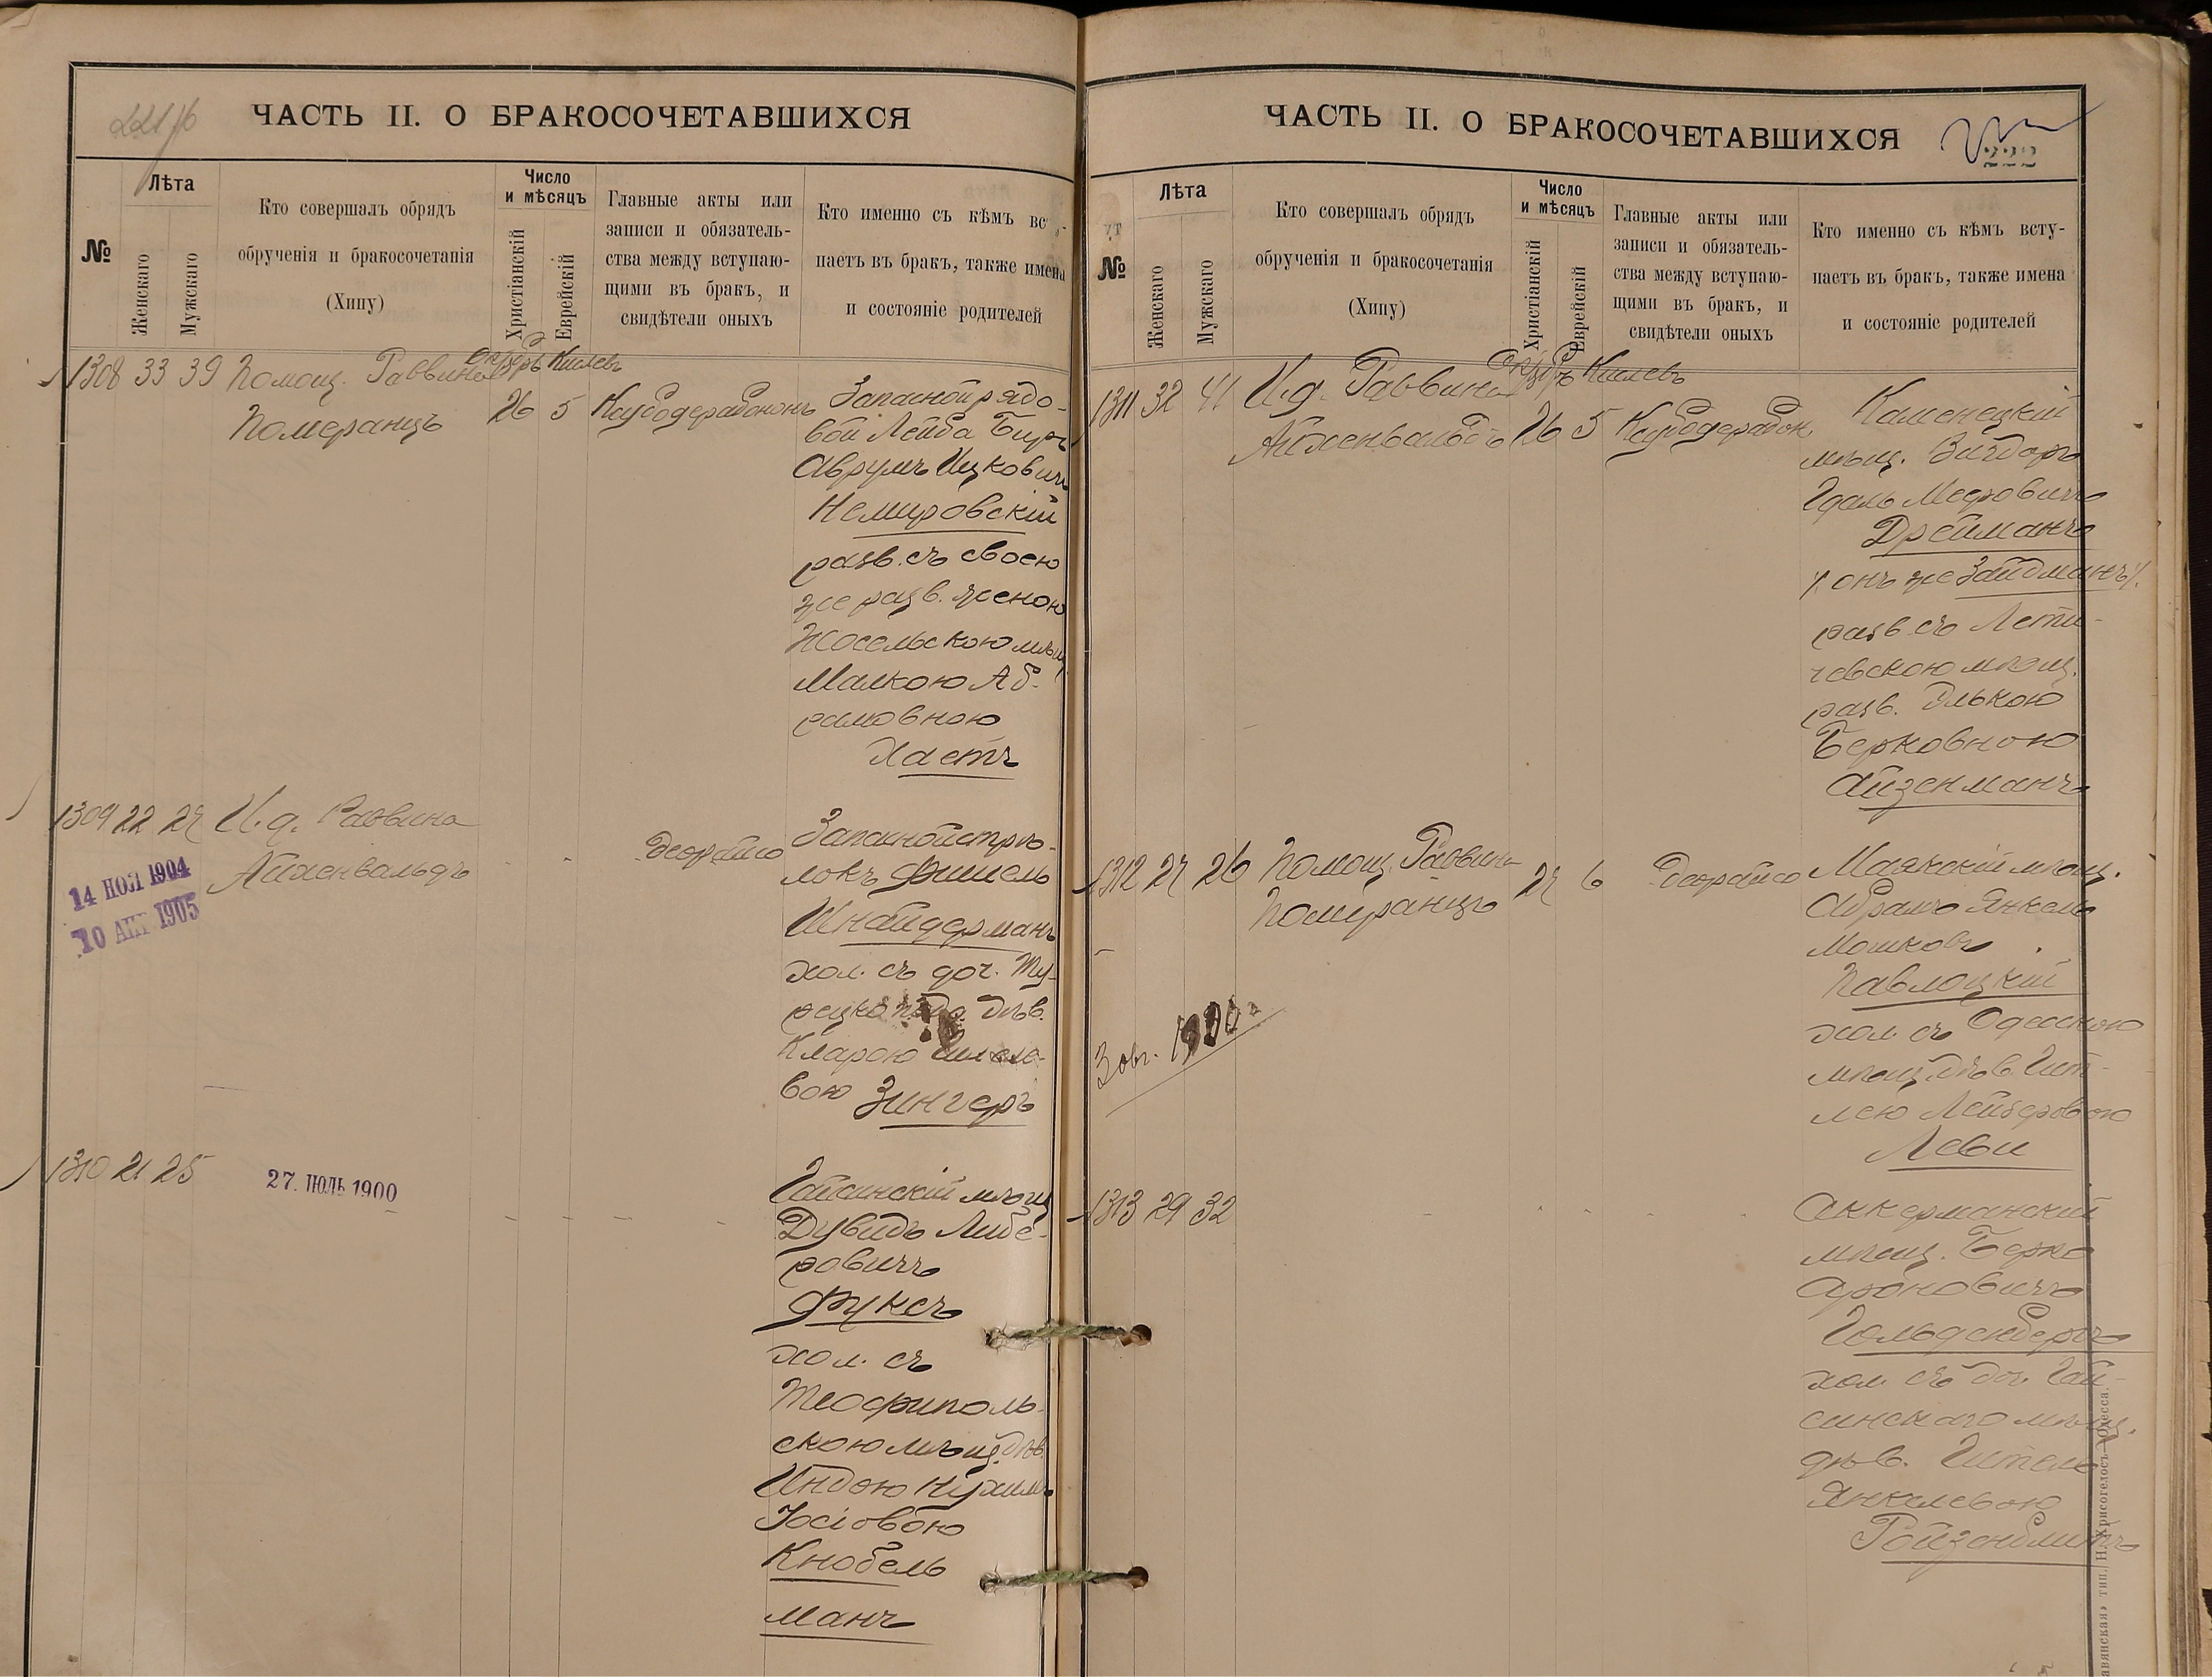 ЧАСТЬ II. О БРАКОСОЧЕТАВШИХСЯ
№
Лѣта
Женскаго
Мужскаго
Кто совершалъ обрядъ
обрученія и бракосочетанія
(Хипу)
Число
и мѣсяцъ
Христіанскій
Еврейскій
Главные акты или
записи и обязатель-
ства между вступаю-
щими въ бракъ, и
свидѣтели оныхъ
Кто именно съ кѣмъ вс
паетъ въ брак, также имена
и состояніе родителей
1308 33 39 Помощ. Раввина Кислевъ
Померанцъ 26 5
Запасной рядо-
вой Лейба Беръ
Аврумъ Ицковичъ
Немировскій
разв. съ своею
же разв. женою
мѣщ.
Малкою Аб-
рамовною
Хаетъ
1309 22 27 И.д. Раввина
Айхенвальдъ
14 НОЯ 1904
10 АПР 1905
Запасной стрѣ-
локъ Фишель
Шнайдерманъ
хол. съ доч. Ту-
рецко под. дѣв.
Кларою
вою Зингеръ
1310 21 25
27. ІЮЛЬ 1900
Гайсинскій мѣщ
Дувидъ Либе-
ровичъ
Фуксъ
хол. съ
Теофиполь-
скою мѣщ. дѣв.
Индою Нухим
Іосіовою
Кнобель
манъ
ЧАСТЬ II. О БРАКОСОЧЕТАВШИХСЯ
222
№
Лѣта
Женскаго
Мужскаго
Кто совершалъ обрядъ
обрученія и бракосочетанія
(Хипу)
Число
и мѣсяцъ
Христіанскій
Еврейскій
Главные акты или
записи и обязатель-
ства между вступаю-
щими въ бракъ, и
свидѣтели оныхъ
Кто именно съ кѣмъ всту-
паетъ въ бракъ, также имена
и состояніе родителей
1311 32 41 И.д. Раввина Кислевъ
Айхенвальдъ 26 5
Каменецкій
мѣщ. Вигдоръ
Гдаль Мееровичъ
Дрейманъ
/. онъ же Зайдманъ /.
разв. съ Лети-
чевскою мѣщ.
разв. Элькою
Берковною
Айзенманъ
1312 27 26 Помощ. Раввина 27 6
Померанцъ
Маякскій мѣщ.
Абрамъ Янкель
Мошковъ
Павлоцкій
хол. съ Одесскою
мѣщ. дѣв. Гит-
лею Лейзеровою
Леви
1313 29 32
Аккерманскій
мѣщ. Берко
Ароновичъ
Гольденбергъ
хол. съ доч. Гай-
синскаго мѣщ.
дѣв. Гителе
Янкелевою
Ройзенблитъ
тип. Н. Хрисогелосъ—Одесса.